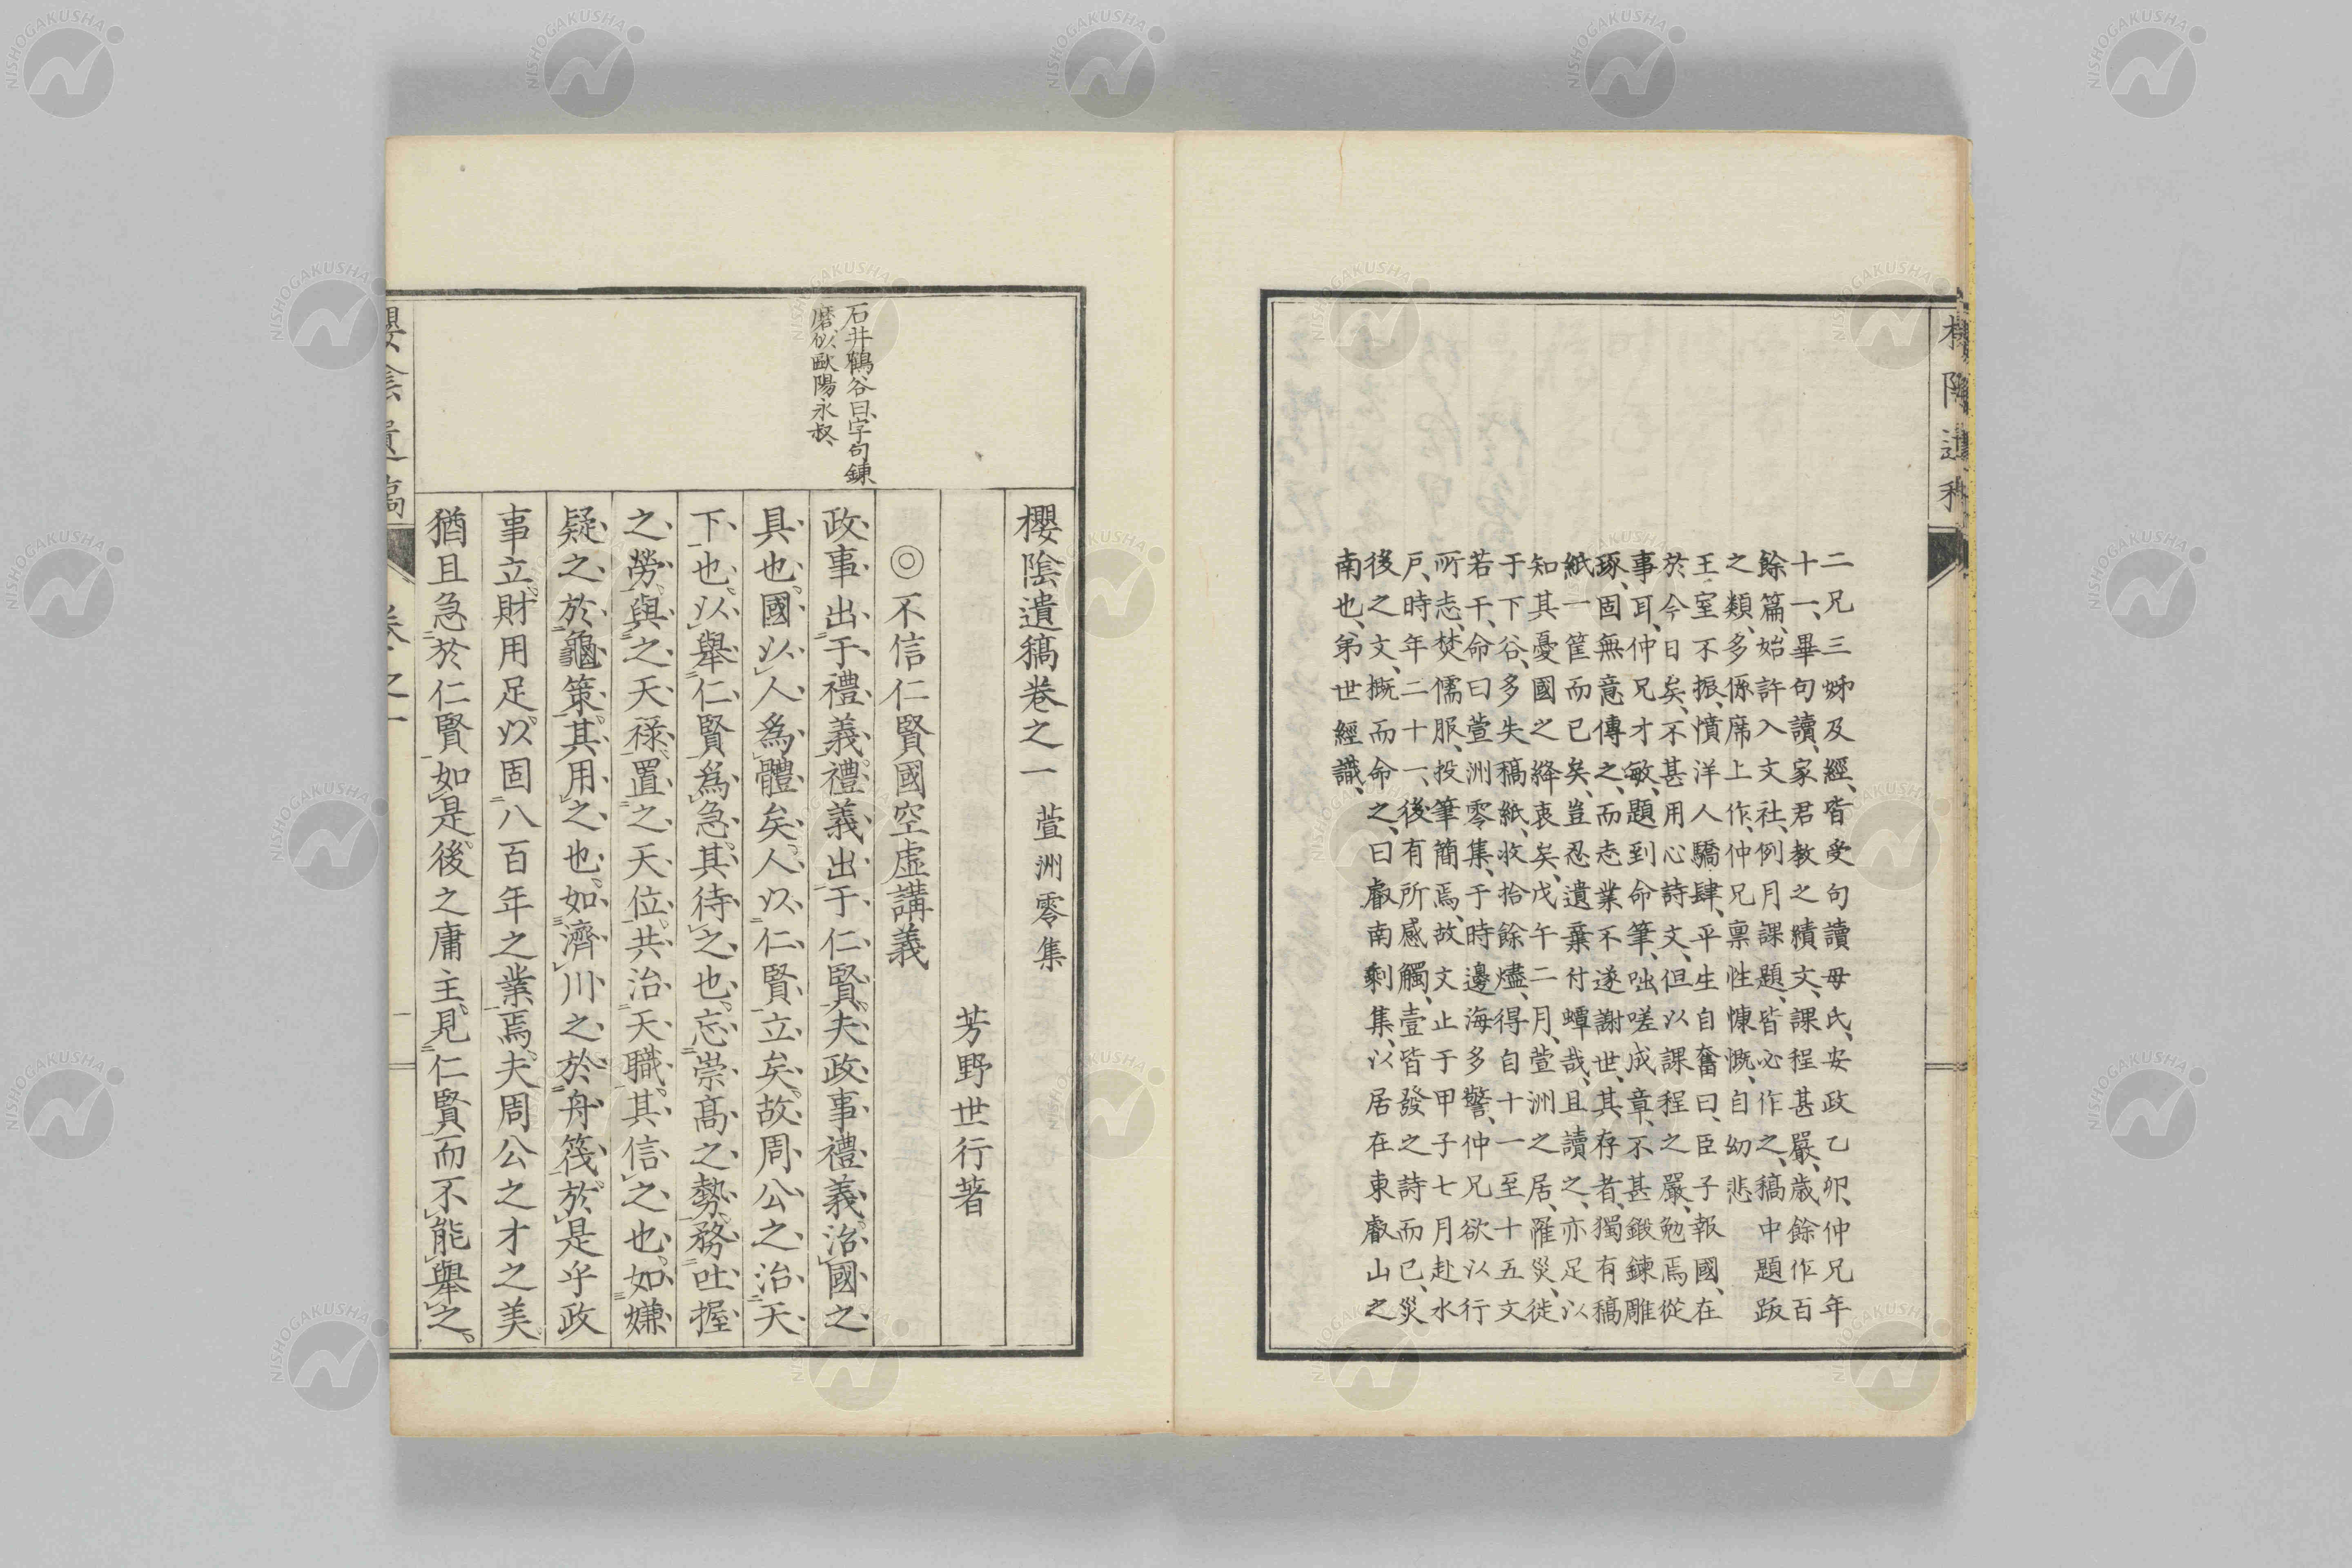 二兄三姊及經、皆受句讀母氏、安政乙卯、仲兄年
十一、畢句讀、家君教之績文、課程甚嚴、歲餘作百
餘篇、始許入文社、例月課題、皆必作之、稿中題跋
之類、多係席上作、仲兄稟性慷慨、自幼悲
王室不振、憤洋人驕肆、平生自奮曰、臣子報國、在
於今日矣、不甚用心詩文、但以課程之嚴、勉焉從
事耳、仲兄才敏、題到命筆、咄嗟成章、不甚鍛鍊雕
琢、固無意傳之、而志業不遂謝世、其存者、獨有稿
紙一筐而已矣、豈忍遺棄付蟫哉、且讀之、亦足以
知其憂國之絳衷矣、戊午二月、萱洲之居、罹災、徙
于下谷、多失稿紙、收拾餘燼、得自十一至十五文
若干、命曰萱洲零集、于時邊海多警、仲兄欲以行
所志、焚儒服、投筆簡焉、故文止于甲子七月赴水
戶、時年二十一、後有所感觸、壹皆發之詩而已、災
後之文、概而命之、曰叡南剩集、以居在東叡山之
南也、弟世經識、
櫻陰遺稿卷之一 萱洲零集
芳野世行著
◎不信仁賢國空虛講義
政事出于禮義。禮義出于仁賢。夫政事禮義。治國之
具也。國以人爲體矣。人以仁賢立矣。故周公之治天
下也。以舉仁賢爲急。其待之也。忘崇高之勢。務吐握
之勞。與之天祿。置之天位。共治天職。其信之也。如嫌
疑之於龜策。其用之也。如濟川之於舟筏。於是乎政
事立。財用足。以固八百年之業焉。夫周公之才之美
猶且急於仁賢如是。後之庸主。見仁賢而不能舉之。
石井鶴谷曰、字句鍊
磨、似歐陽永叔、
櫻陰遺稿 卷之一 一
NISHOGAKUSHA